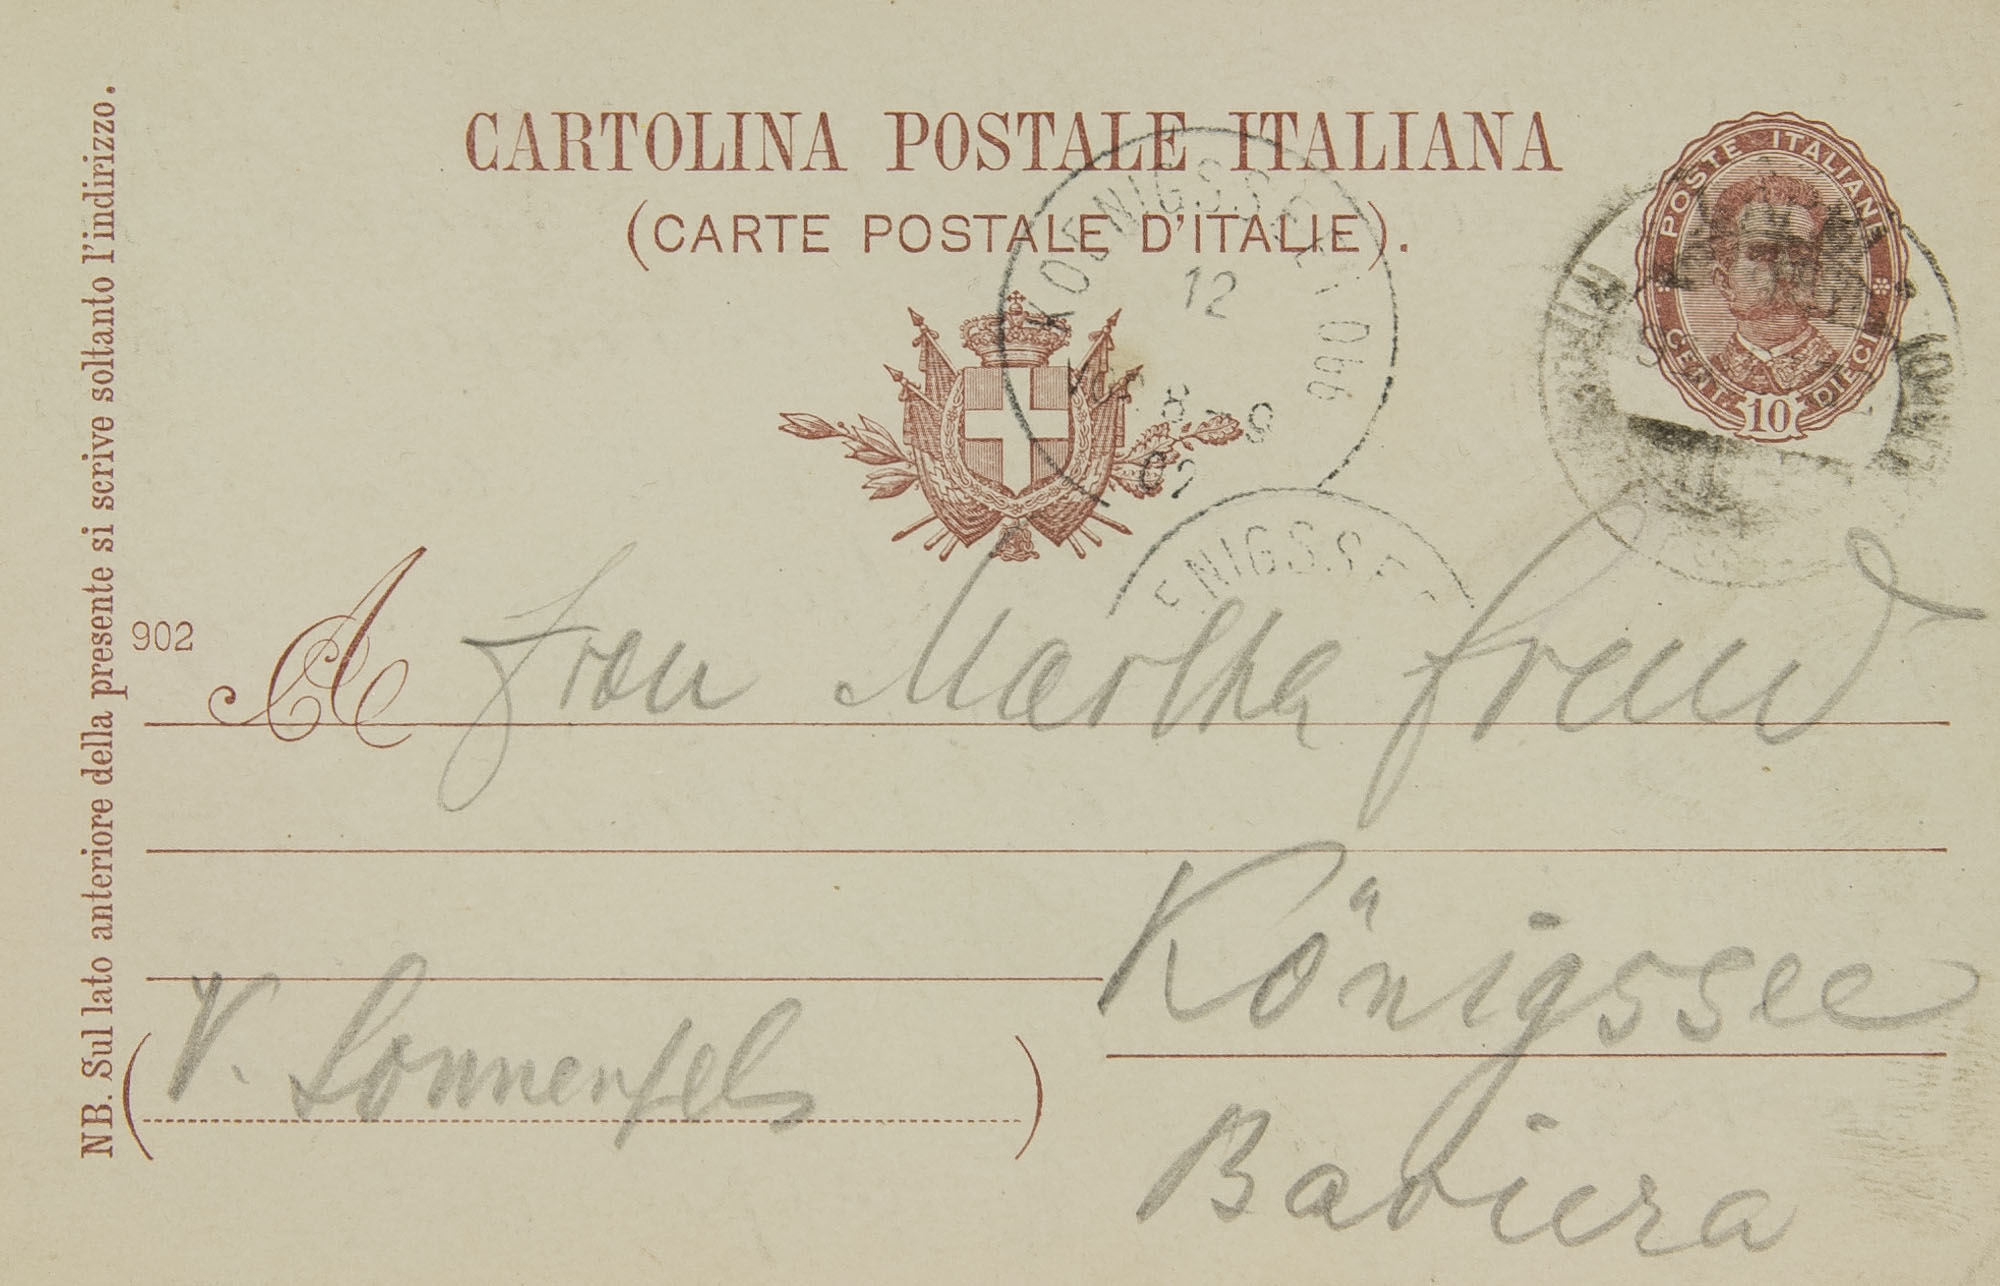 CARTOLINA POSTALE ITALIANA
(CARTE POSTALE D'ITALIE).
POSTE ITALIANE
CENT. 10 DIECI
KOENIGSSEE
12
8-9
02
ENIGSSE
NB. Sul lato anteriore della presente si scrive soltanto l'indirizzo.
902
A Frau Martha Freud
Königssee
(V. Sonnenfels)
Baviera